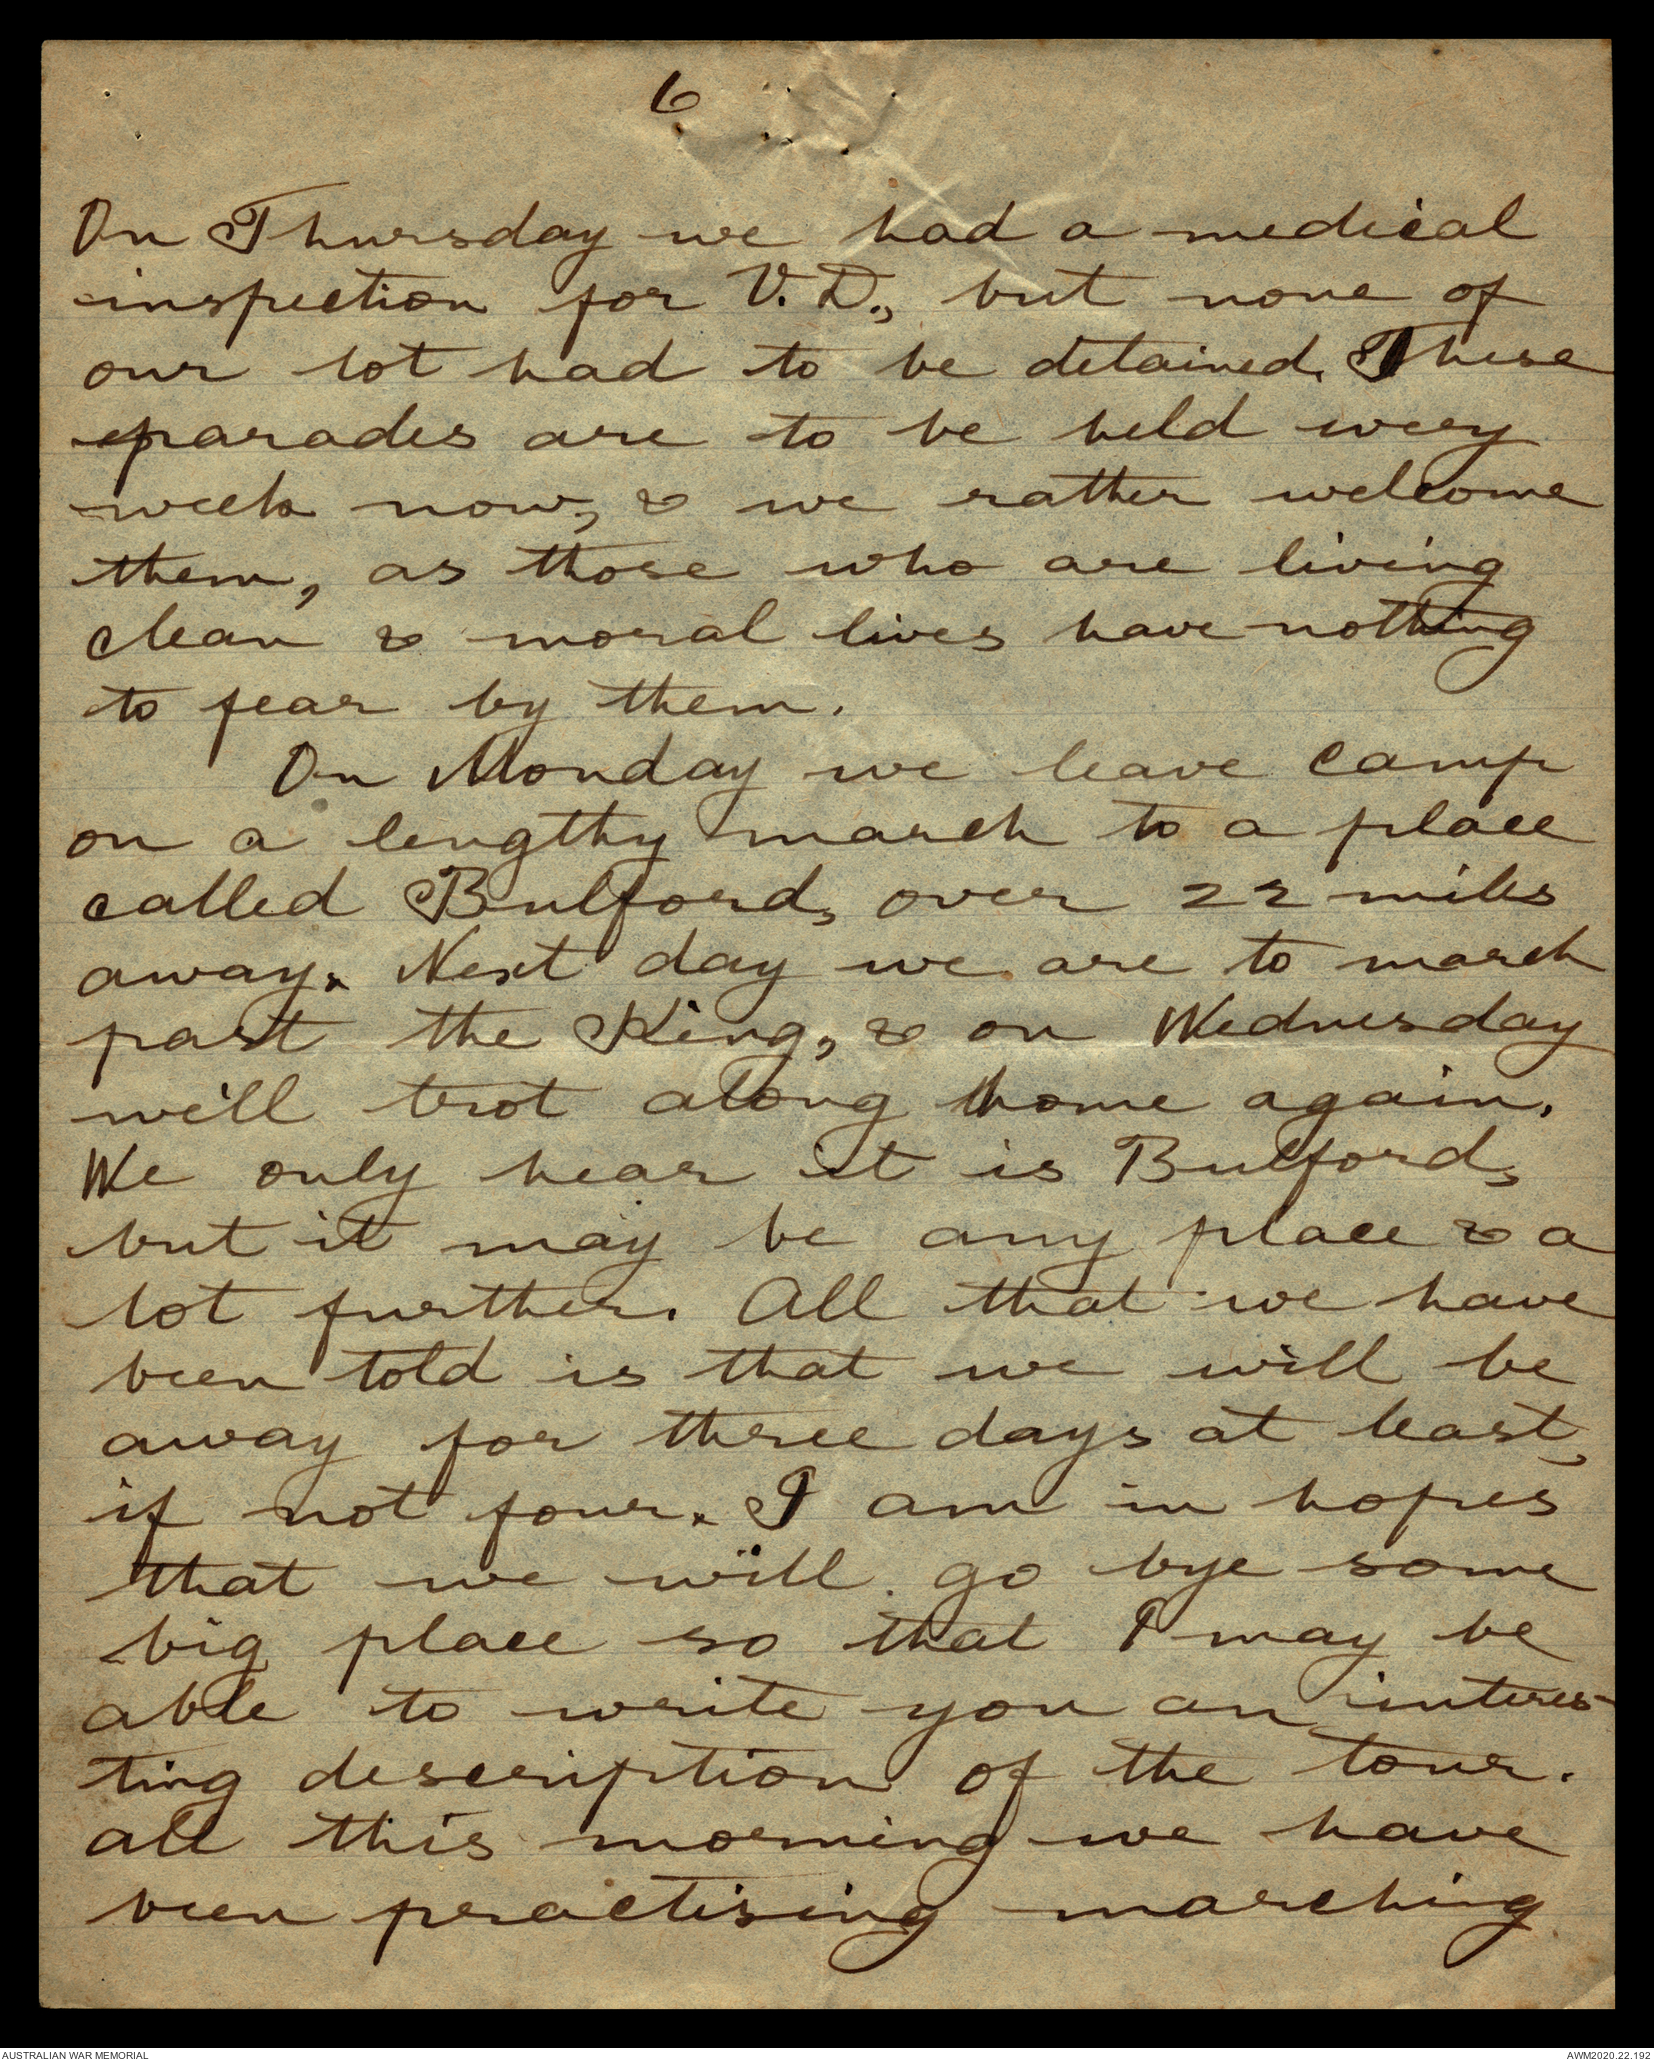 6
On Thursday we had a medical
inspection for V.D., but none of
our lot had to be detained. These
parades are to be held every
week now, & we rather welcome
them, as those who are living
clean & moral lives have nothing
to fear by them.
On Monday we leave camp
on a lengthy march to a place
called Bulford, over 22 miles
away. Next day we are to march
past the King, & on Wednesday
will trot along home again.
We only hear it is Bulford,
but it may be any place & a
lot further. All that we have
been told is that we will be
away for three days at least,
if not four. I am in hopes
that we will go bye some
big place so that I may be
able to write you an interes-
ting description of the tour.
all this morning we have
been practising marching
AUSTRALIAN WAR MEMORIAL
AWM2020.22.192